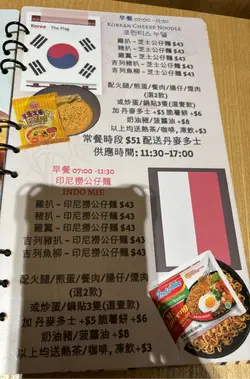 早餐 07:00 - 11:30
KOREAN CHEESE NOODLE
코리안치즈 누들
Korea The Flag
雞扒 - 芝士公仔麵 $43
豬扒 - 芝士公仔麵 $43
雞翼 - 芝士公仔麵 $43
吉列豬扒 - 芝士公仔麵 $43
吉列魚柳 - 芝士公仔麵 $43
配火腿/煎蛋/餐肉/腸仔/燻肉
(選2款)
或炒蛋/鍋貼3隻(選壹款)
加 丹麥多士 +$5 脆薯餅 +$6
奶油豬/菠蘿油 +$8
以上均送熱茶/咖啡, 凍飲+$3
常餐時段 $51 配送丹麥多士
供應時間: 11:30-17:00
早餐 07:00 -11:30
印尼撈公仔麵
INDO MIE
雞扒 - 印尼撈公仔麵 $43
豬扒 - 印尼撈公仔麵 $43
雞翼 - 印尼撈公仔麵 $43
吉列豬扒 - 印尼撈公仔麵 $43
吉列魚柳 - 印尼撈公仔麵 $43
配火腿/煎蛋/餐肉/腸仔/燻肉
(選2款)
或炒蛋/鍋貼3隻(選壹款)
加 丹麥多士 +$5 脆薯餅 +$6
奶油豬/菠蘿油 +$8
以上均送熱茶/咖啡, 凍飲+$3
Indomie